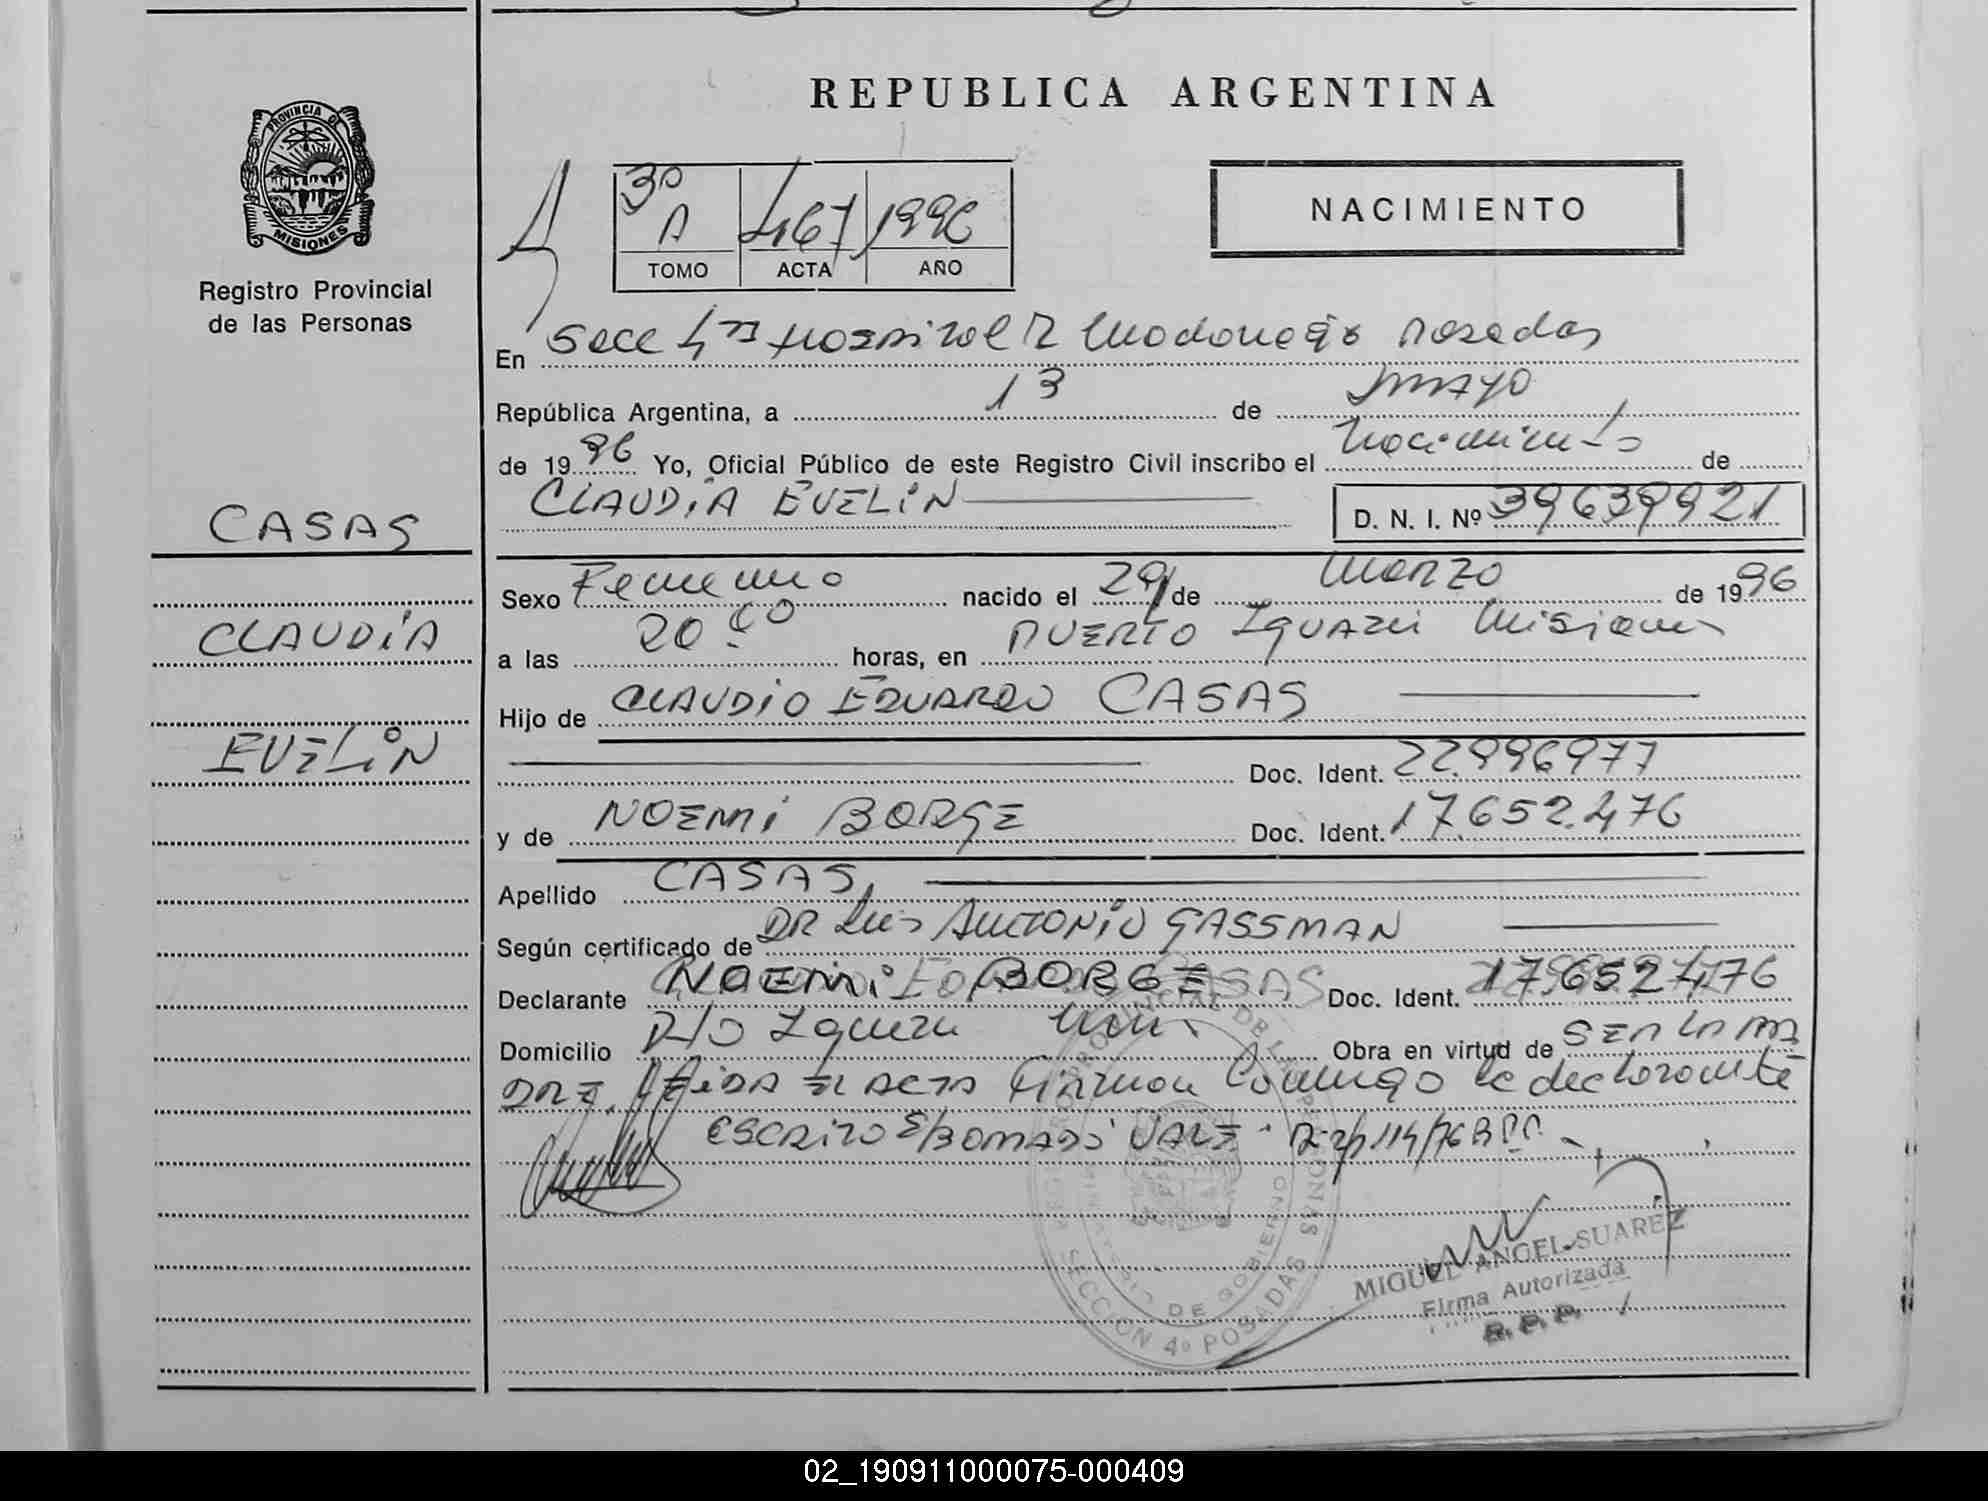 PROVINCIA DE
MISIONES
Registro Provincial
de las Personas
CASAS
CLAUDIA
EVELIN
REPUBLICA ARGENTINA
3º A 467 1996
TOMO ACTA AÑO
NACIMIENTO
En Secc 4ta Hospital R Madariaga Posadas
República Argentina, a 13 de mayo
de 1996 Yo, Oficial Público de este Registro Civil inscribo el Nacimiento de
CLAUDIA EVELIN D. N. I. Nº 39639921
Sexo Femenino nacido el 29 de Marzo de 1996
a las 20 horas, en PUERTO Iguazu Misiones
Hijo de CLAUDIO EDUARDO CASAS
Doc. Ident. 22.996977
y de NOEMI BORGE Doc. Ident. 17.652.476
Apellido CASAS,
Según certificado de DR Luis ANTONIO GASSMAN
Declarante NOEMI BORGE Doc. Ident. 17.652476
Domicilio Pto Iguazu Mis. Obra en virtud de SER LA MA
DRE. LEIDA EL ACTA Firman Conmigo la declarante
ESCRITO S/BORRADO VALE
REGISTRO PROVINCIAL DE LAS PERSONAS
MINISTERIO DE GOBIERNO
SECCION 4º POSADAS
MIGUEL ANGEL SUAREZ
Firma Autorizada
R. P. P.
02_190911000075-000409